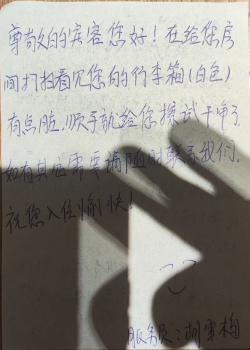 尊敬的宾客您好！在给您房
间打扫看见您的行李箱(白色)
有点脏.顺手就给您擦试干净了
如有其他需要请随时联系我们.
祝您入住愉快！
服务员:胡雪梅